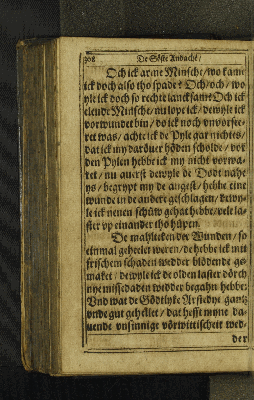 308 De Söste Andacht/
Och ick arme Minsche/ wo kame
ick doch also tho spade? Och/ och/ wo
yle ick doch so rechte lancksam? Och ick
elende Minsche/ nu lope ick/ dewyle ick
vorwundet bin/ do ick noch unvorse-
ret was/ achte ick de Pyle gar nichtes/
dat ick my darvver höden scholde/ vor
den Pylen hebbe ick my nicht vorwa-
ret/ nu auerst dewyle de Dodt nahe
ys/ begrypt my de angest/ hebbe eine
wunde in de andere geschlagen/ dewy-
le ick nenen schüw gehat hebbe/ vele la-
ster vp einander tho hüpen.
De mahlteken der Wunden/ so
einmal geheelet weren/ de hebbe ick mit
frischem schaden wedder blödende ge-
maket/ dewyle ick de olden laster dörch
nye missedaden wedder begahn hebbe:
Vnd wat de Gödtlyke Arstedye gantz
vnde gut gehelet/ dat hefft myne da-
uende vnsinnige vörwitticheit wed-
der